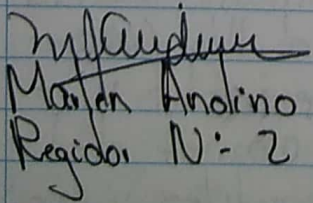 Martin Andino
Regidor N:- 2